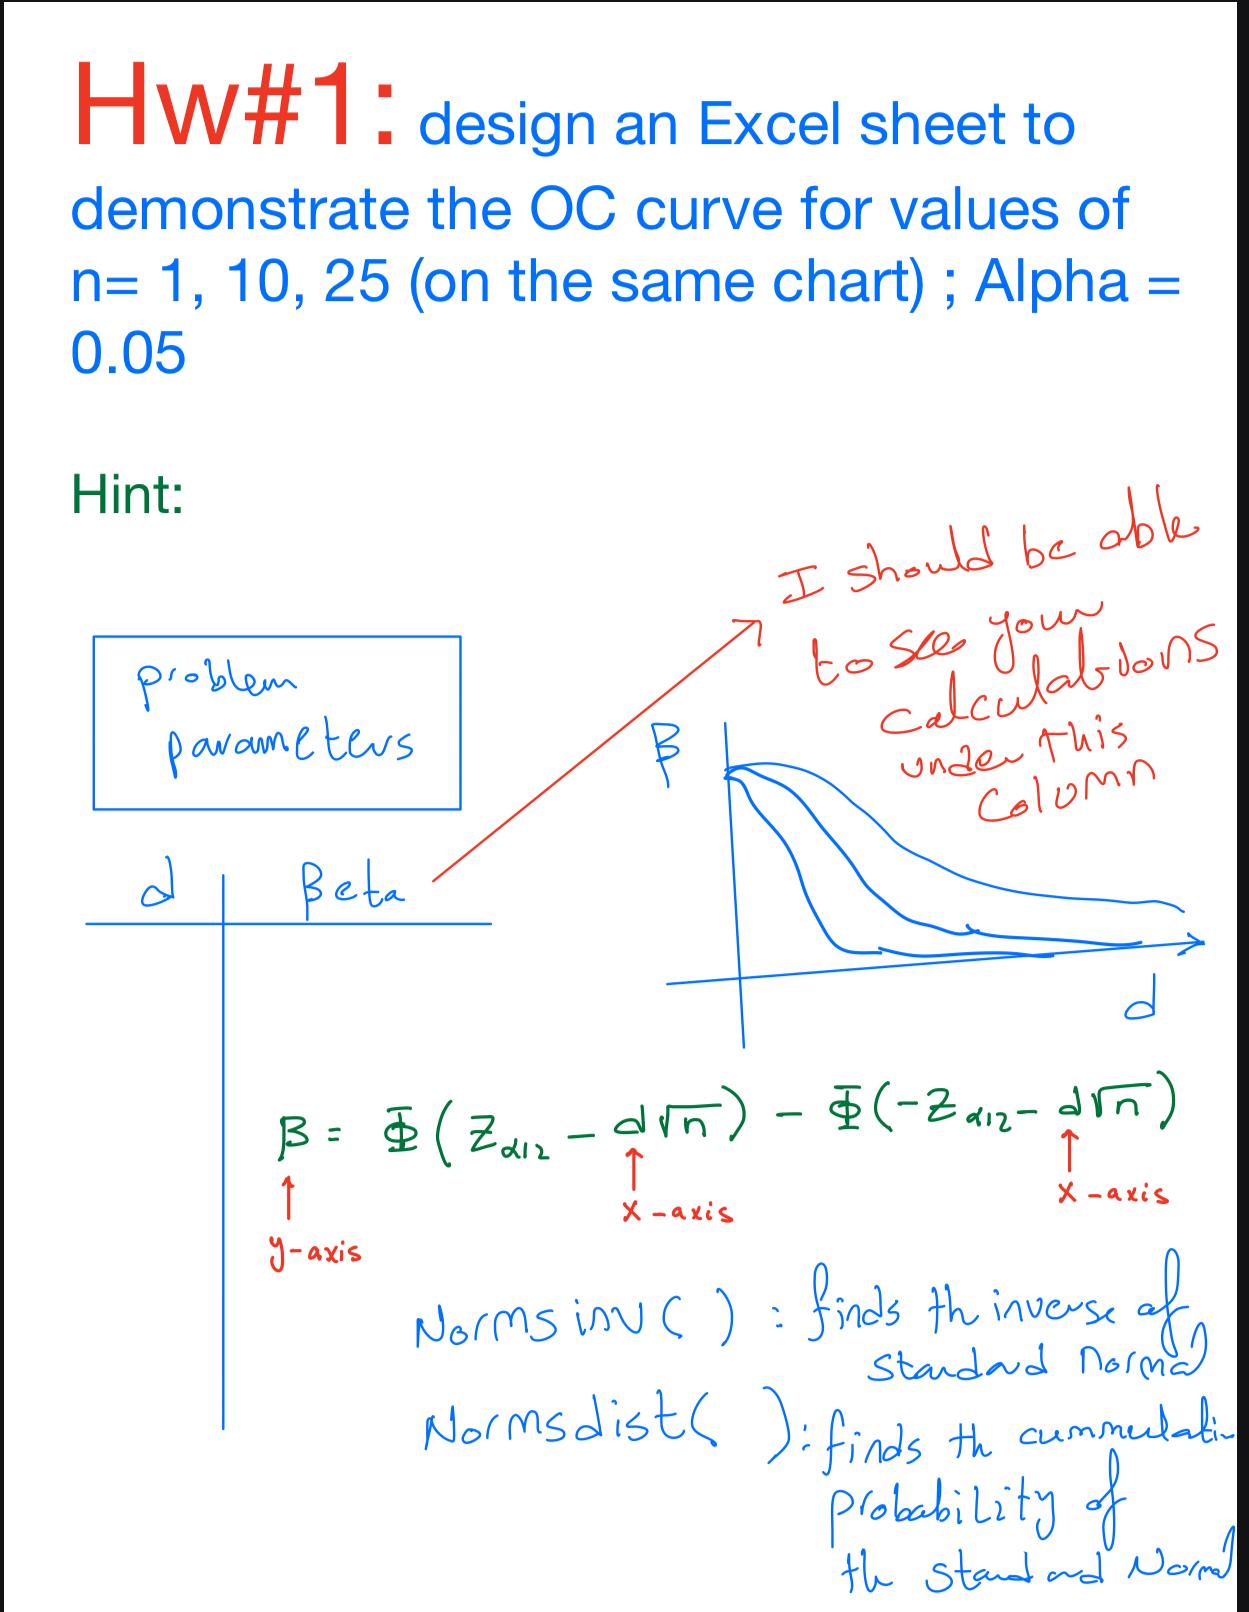 Hw#1: design an Excel sheet to
demonstrate the OC curve for values of
n= 1, 10, 25 (on the same chart) ; Alpha =
0.05
Hint:
I should be able
to see your
calculations
under this
Column
problem
parameters
d Beta
β
d
β = Φ(Zα/2 − d√n) − Φ(−Zα/2 − d√n)
y-axis
x-axis
x-axis
Normsinv( ) : finds th inverse of
standard Normal
Normsdist( ): finds th cummulativ
probability of
th standard Normal